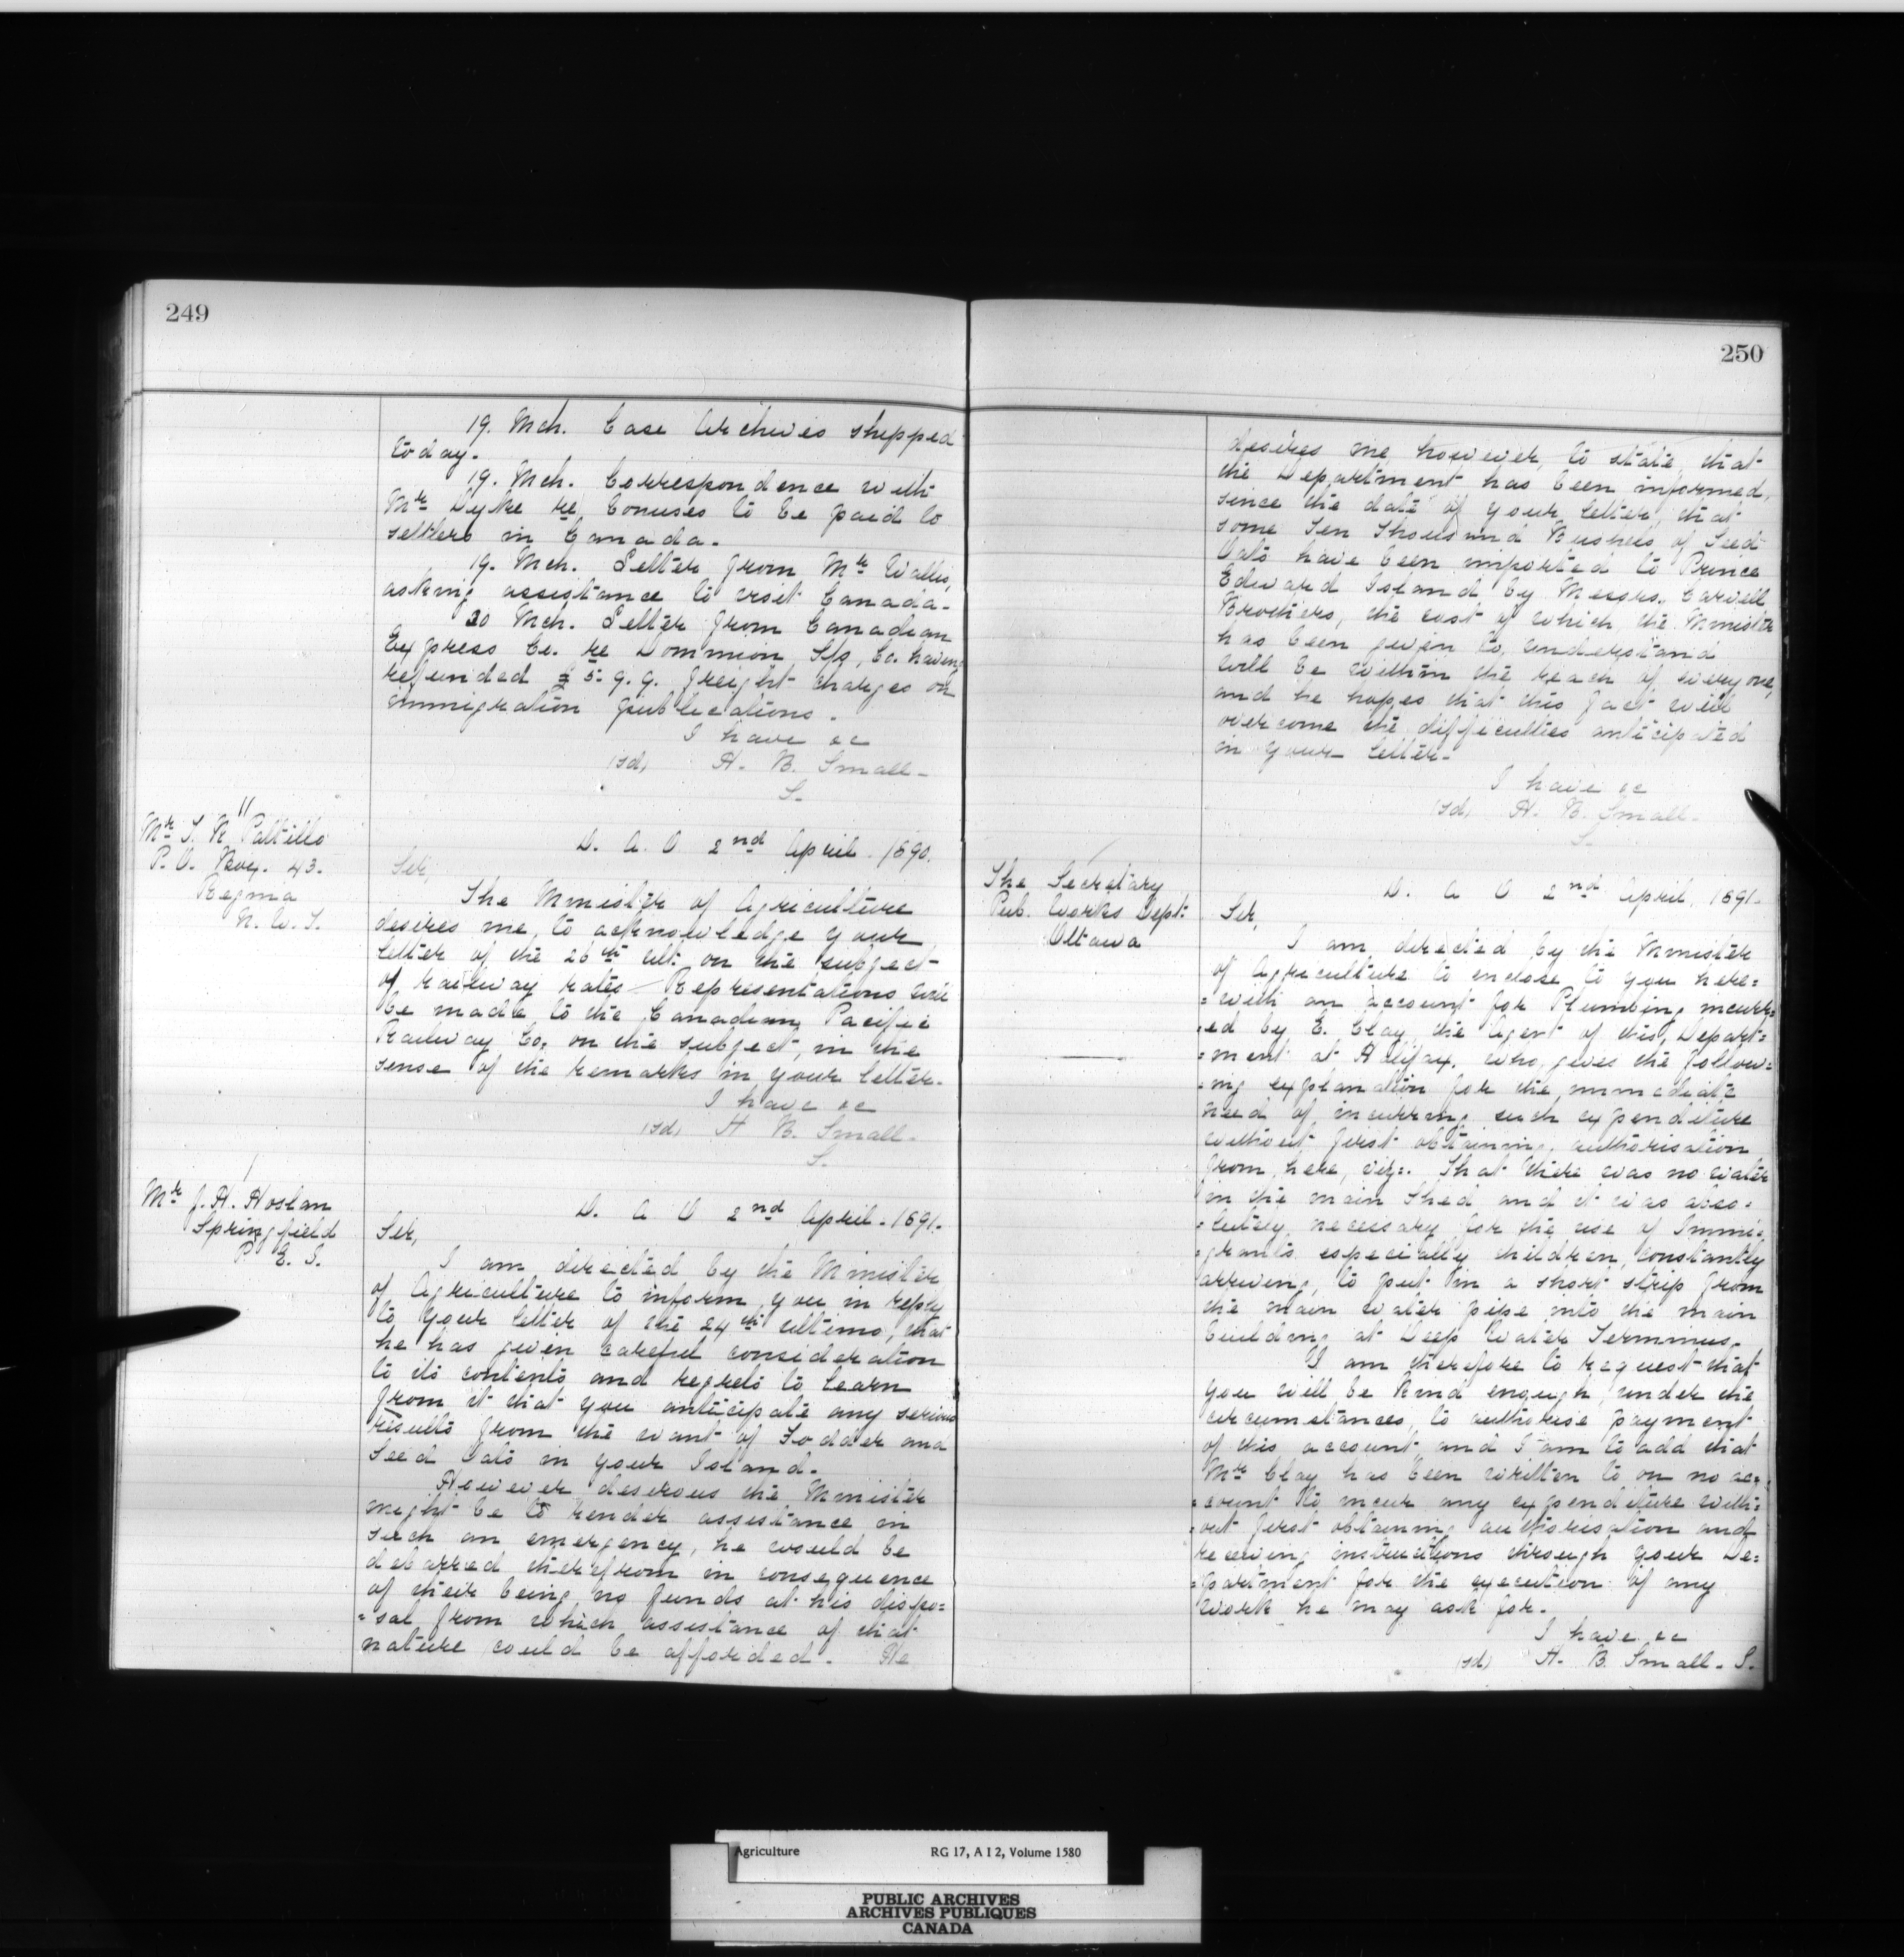 249
19. Mch. Case Archives shipped
today.
19. Mch. Correspondence with
Mr Dyke re bonuses to be paid to
settlers in Canada.
19. Mch. Letter from Mr Wallis,
asking assistance to visit Canada.
20 Mch. Letter from Canadian
Express Co. re Dominion S/S, Co. having
refunded £5. 9. 9. freight charges on
immigration publications.
I have &c
(sd) H. B. Small
S.
11
Mr T. R. Pattillo
P. O. Box. 43.
Regina
N. W. T.
D. A. O 2nd April. 1890.
Sir,
The Minister of Agriculture
desires me, to acknowledge your
letter of the 26th ult: on the subject
of railway rates. Representations will
be made to the Canadian Pacific
Railway Co. on the subject, in the
sense of the remarks in your letter.
I have &c
(sd) H B. Small.
S.
1
Mr J. H. Hoslan
Springfield
P. E. I.
D. A O 2nd April. 1891.
Sir,
I am directed by the Minister
of Agriculture to inform you in reply
to your letter of the 24th ultimo, that
he has given careful consideration
to its contents and regrets to learn
from it that you anticipate any serious
results from the want of Fodder and
Seed Oats in your Island.
However desirous the Minister
might be to render assistance in
such an emergency, he would be
debarred therefrom in consequence
of their being no funds at his dispo=
=sal from which assistance of that
nature could be afforded. He
250
desires me, however, to state, that
the Department has been informed,
since the date of your letter, that
some Ten Thousand Bushels of Seed
Oats have been imported to Prince
Edward Island by Messrs. Carvell
Brothers, the cost of which, the Minister
has been given to, understand
will be within the reach of every one,
and he hopes that this fact will
overcome the difficulties anticipated
in your letter.
I have &c
(sd) H. B. Small.
S.
The Secretary
Pub. Works Dept:
Ottawa
D. A O 2nd April, 1891.
Sir,
I am directed by the Minister
of Agriculture to enclose to you here=
=with an account for Plumbing incurr=
=ed by E. Clay, the Agent of this, Depart=
=ment at Halifax, who, gives the follow=
=ing explanation for the immediate
need of incurring such expenditure
without first obtaining authorisation
from here, viz:. That there was no water
in the main Shed and it was abso=
=lutely necessary for the use of Immi=
=grants especially children, constantly
arriving, to put in a short strip from
the main water pipe into the main
building at Deep Water Terminus.
I am therefore to request that
you will be kind enough, under the
circumstances, to authorise payment
of this account, and I am to add that
Mr Clay has been written to on no ac=
=count to incur any expenditure with=
=out first obtaining authorisation and
receiving instructions through your De=
=partment for the execution of any
work he may ask for.
I have &c
(sd) H. B. Small. S.
Agriculture RG 17, A I 2, Volume 1580
PUBLIC ARCHIVES
ARCHIVES PUBLIQUES
CANADA